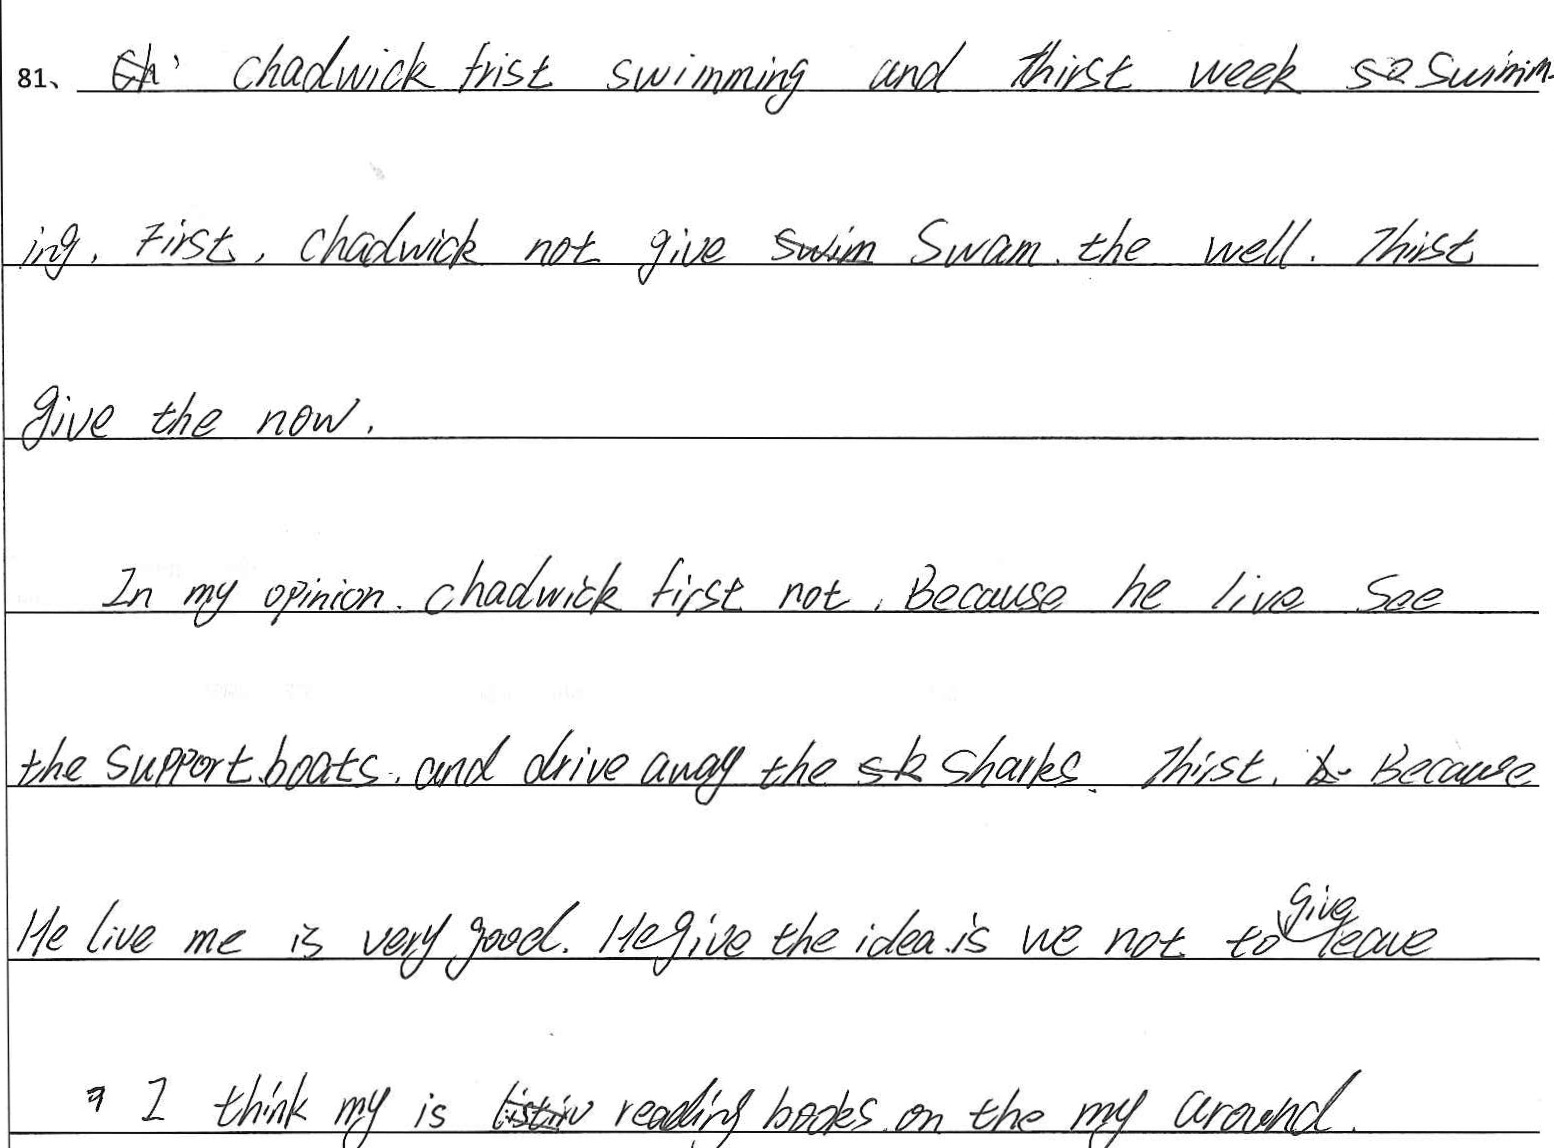 81、 chadwick frist swimming and thirst week swimm-
ing. First, chadwick not give swim Swam. the well. Thirst
give the now.
In my opinion. chadwick first not. Because he live See
the support boats. and drive away the sk sharks. Thirst. Because
He live me is very good. He give the idea is we not to give leave
I think my is reading books on the my around.